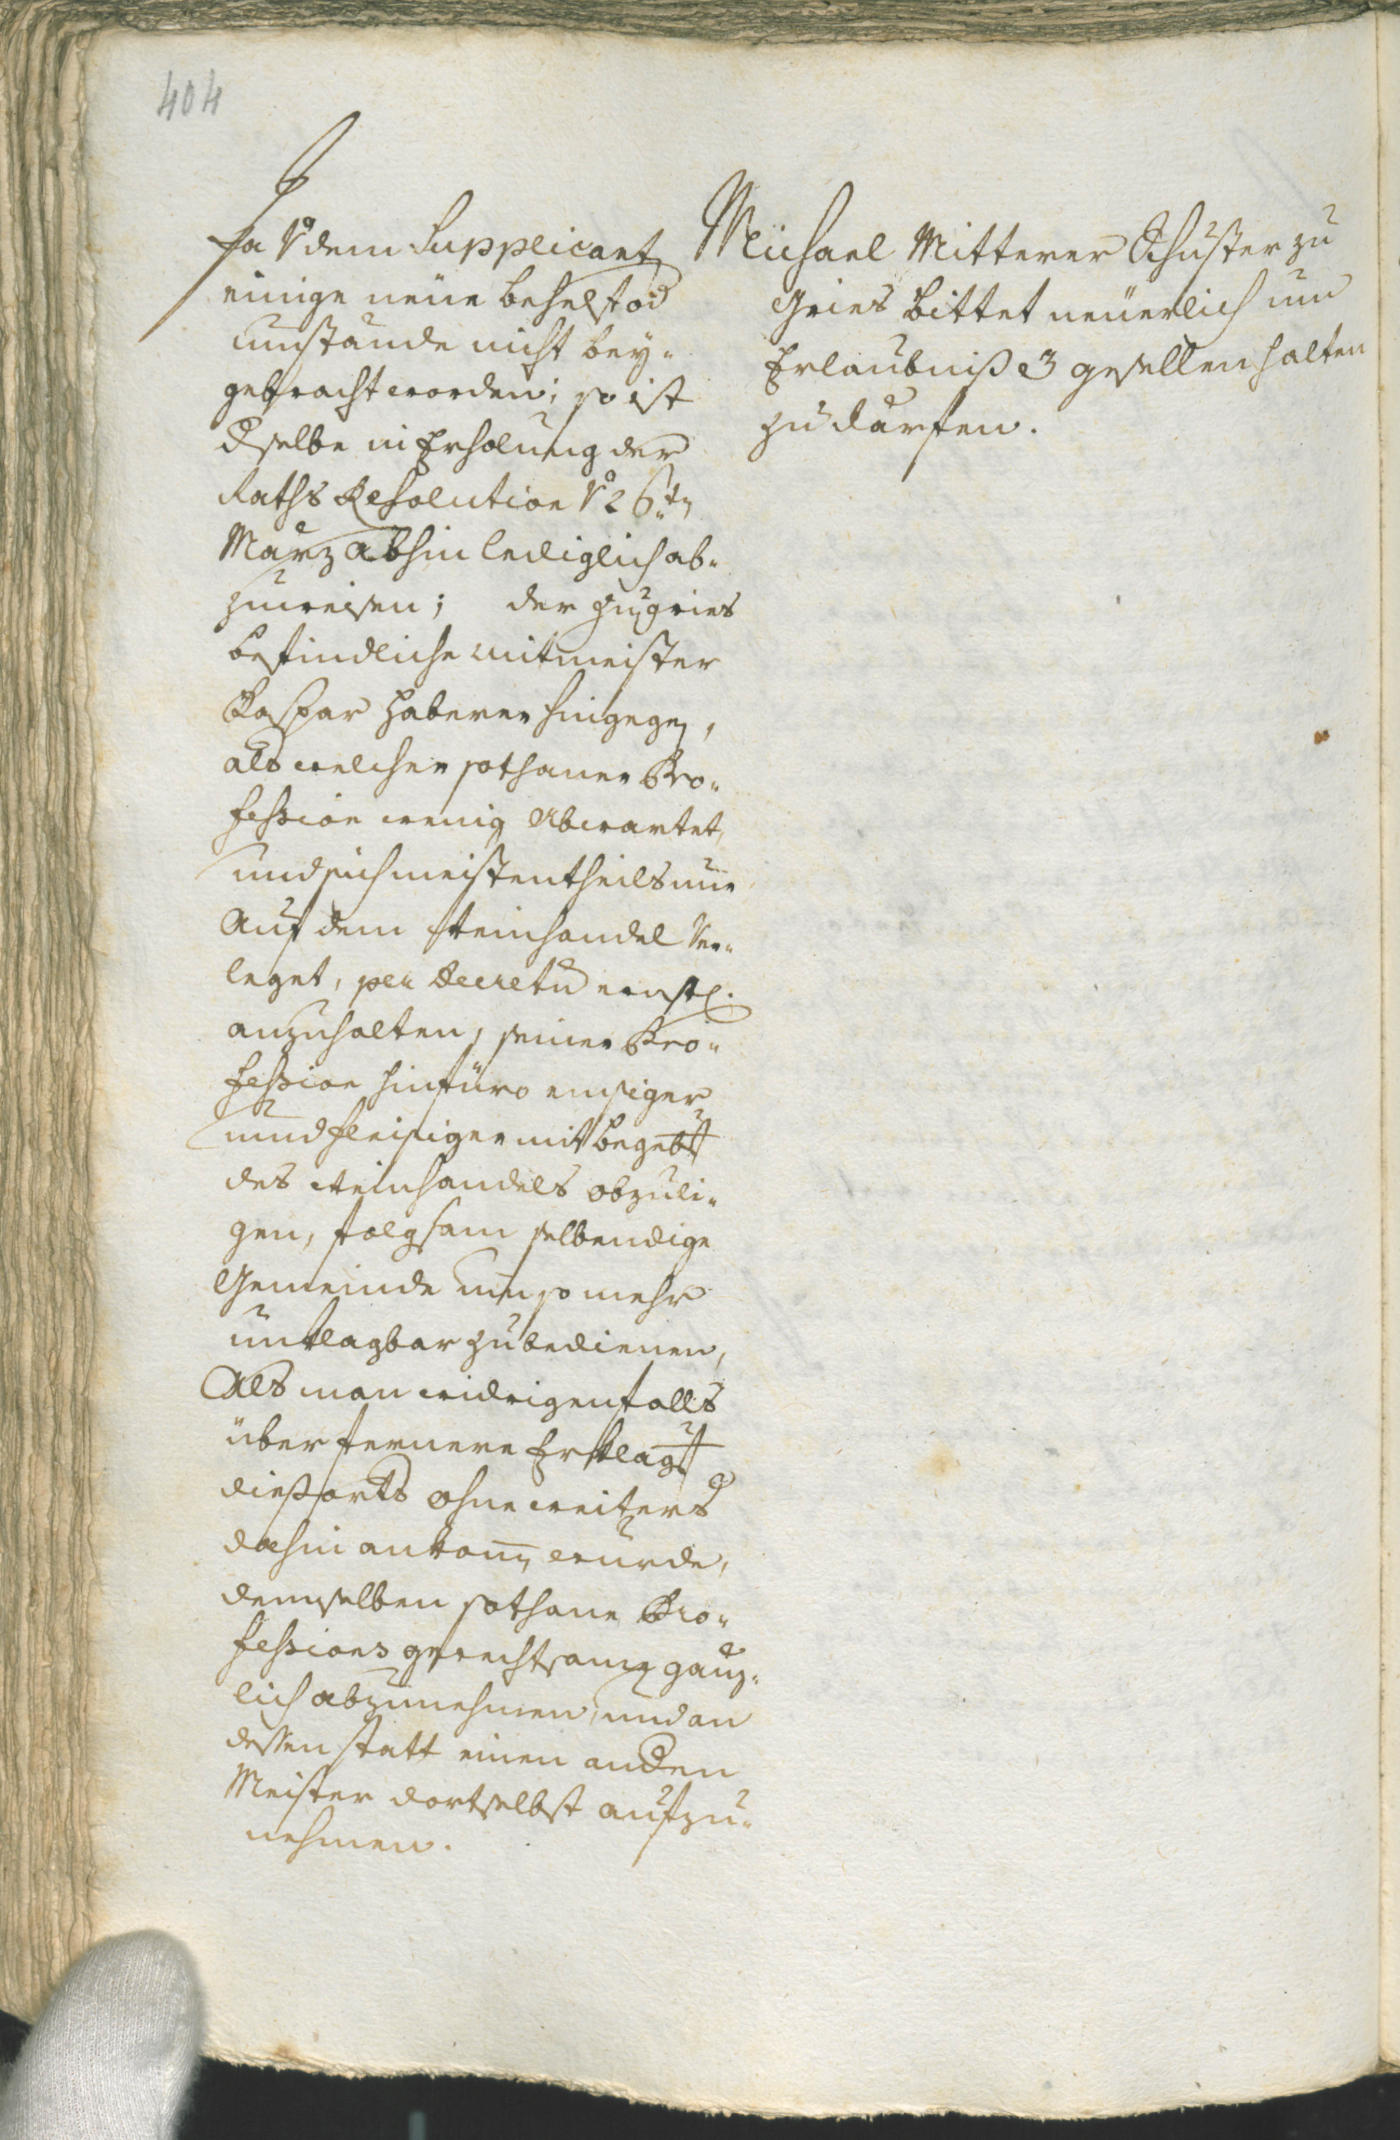 404
Da v dem Supplicanten
einige neüe behelf od
umstände nicht bey-
gebracht worden; so ist
dselbe in Erholung der
Raths Resolution v 26ten
März abhin lediglich ab-
zuweisen; der zu gries
befindliche mitmeister
Caspar Haberer hingegen,
als welcher sothaner Pro-
fession wenig Abwartet,
und sich meistentheils nur
Auf dem Weinhandel ver-
leget, per Decretu ernstl.
anzuhalten, seiner Pro-
fession hinfüro emsiger
und fleisiger mit begebung
des Weinhandels obzuli-
gen, folgsam selbendige
Gemeinde um so mehr
unklagbar zu bedienen,
Als man widrigenfalls
über fernere Erklagung
dießorts ohne weiters
dahin ankomen wurde,
demselben sothane Pro-
fessions gerechtsame gänz-
lich abzunehmen, und an
dessen statt einen anden
Meister dortselbst aufzu-
nehmen.
Michael Mitterer Schuster zu
Gries bittet neüerlich um
Erlaubniß 3 gesellen halten
zu därfen.